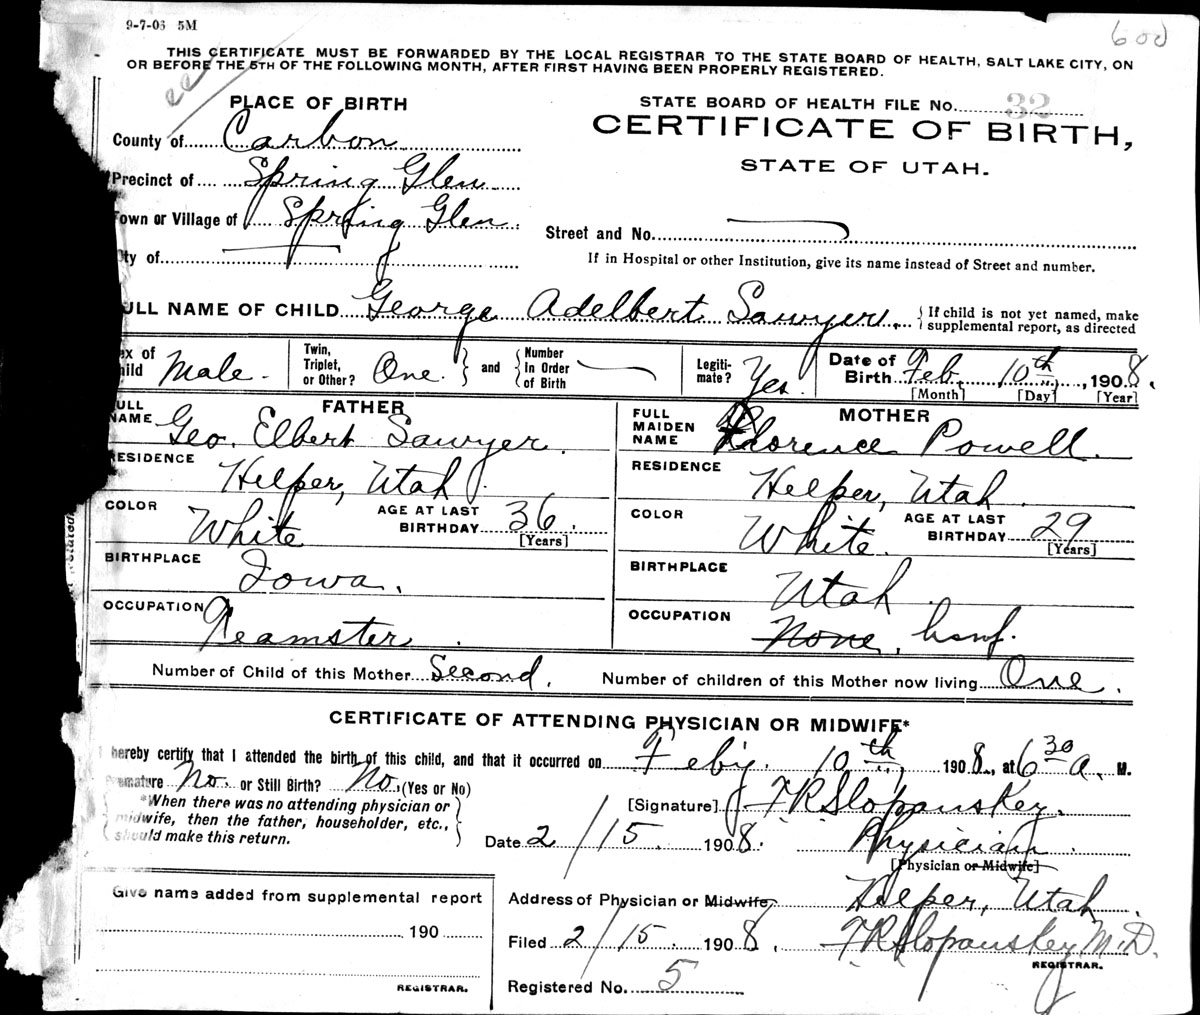 9-7-06 5M
600
THIS CERTIFICATE MUST BE FORWARDED BY THE LOCAL REGISTRAR TO THE STATE BOARD OF HEALTH, SALT LAKE CITY, ON
OR BEFORE THE 5TH OF THE FOLLOWING MONTH, AFTER FIRST HAVING BEEN PROPERLY REGISTERED.
PLACE OF BIRTH
STATE BOARD OF HEALTH FILE No. 32
CERTIFICATE OF BIRTH,
STATE OF UTAH.
County of Carbon
Precinct of Spring Glen
Town or Village of Spring Glen
Street and No.
City of
If in Hospital or other Institution, give its name instead of Street and number.
FULL NAME OF CHILD George Adelbert Sawyer. {If child is not yet named, make supplemental report, as directed
Sex of Child Male. Twin, Triplet, or Other? One. } and { Number in Order of Birth Legiti-mate? Yes. Date of Birth Feb. 10th, 1908.
[Month] [Day] [Year]
FATHER MOTHER
FULL NAME Geo. Elbert Sawyer. FULL MAIDEN NAME Florence Powell.
RESIDENCE Helper, Utah. RESIDENCE Helper, Utah.
COLOR White AGE AT LAST BIRTHDAY 36. [Years] COLOR White. AGE AT LAST BIRTHDAY 29 [Years]
BIRTHPLACE Iowa. BIRTHPLACE Utah.
OCCUPATION Teamster. OCCUPATION None, hswf.
Number of Child of this Mother Second. Number of children of this Mother now living One.
CERTIFICATE OF ATTENDING PHYSICIAN OR MIDWIFE*
I hereby certify that I attended the birth of this child, and that it occurred on Feby. 10th, 1908, at 6 30 a. M.
Premature No. or Still Birth? No. (Yes or No)
*When there was no attending physician or
midwife, then the father, householder, etc.,
should make this return.
[Signature] F R Slopanskey.
Date 2/15. 1908. Physician.
[Physician or Midwife]
Give name added from supplemental report
190
REGISTRAR.
Address of Physician or Midwife Helper, Utah.
Filed 2/15. 1908. F R Slopanskey M.D.
REGISTRAR.
Registered No. 5